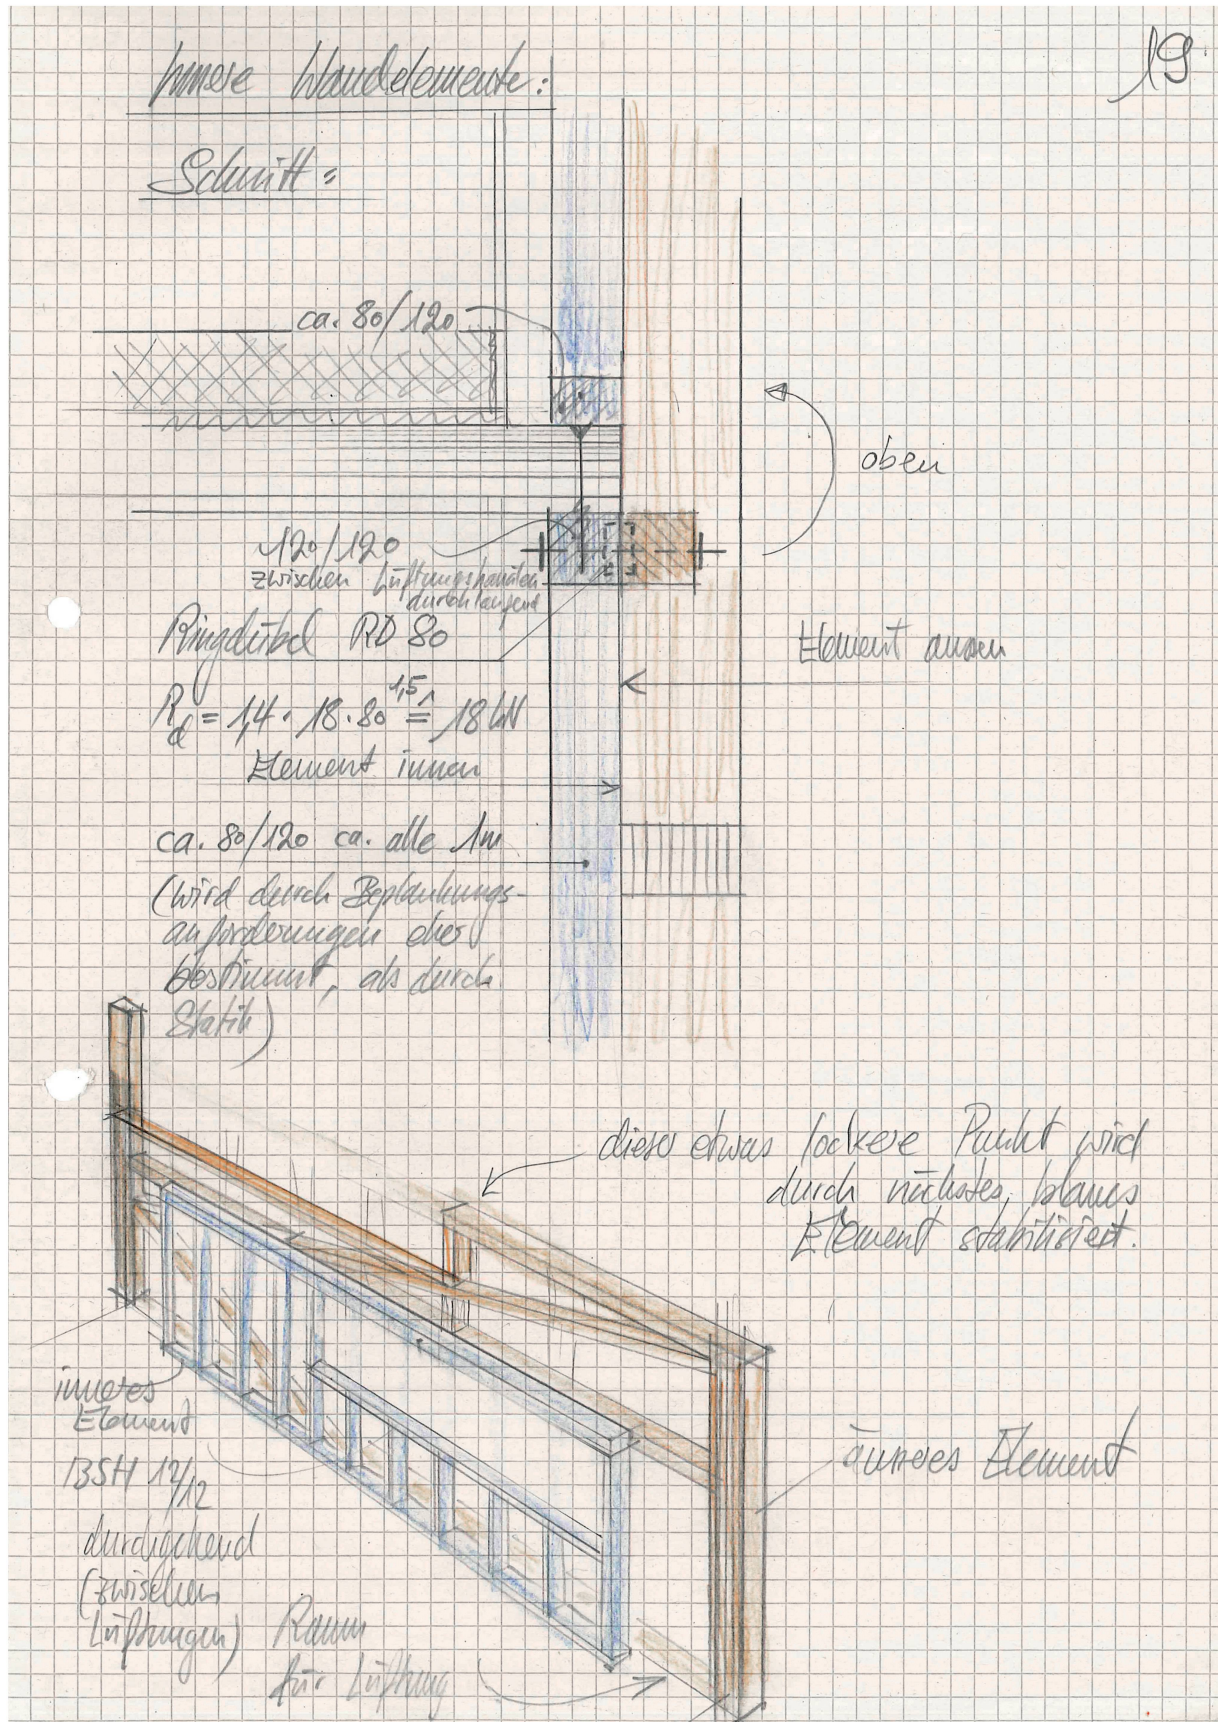 19
Innere Wandelemente:
Schnitt:
ca. 80/120
oben
120/120
zwischen Lüftungskanälen
durchlaufend
Ringdübel RD 80
Element aussen
R_d = 1,4 · 18 · 80^1,5 ≙ 18 kN
Element innen
ca. 80/120 ca. alle 1m
(wird durch Beplankungs-
anforderungen eher
bestimmt, als durch
Statik)
dieser etwas lockere Punkt wird
durch nächstes, blaues
Element stabilisiert.
inneres
Element
BSH 12/12
durchgehend
(zwischen
Lüftungen)
äusseres Element
Raum
für Lüftung